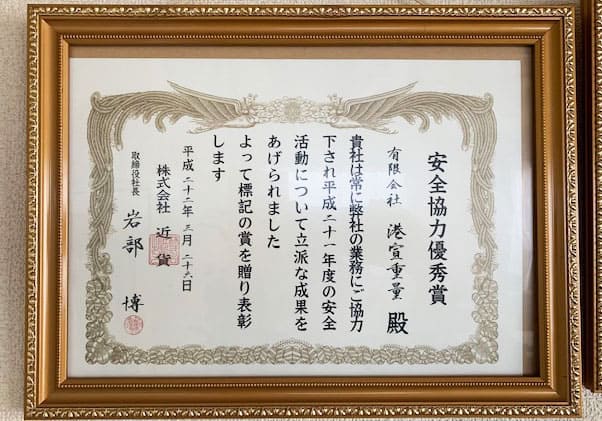 安全協力優秀賞
有限会社 港宣重量 殿
貴社は常に弊社の業務にご協力
下され平成二十一年度の安全
活動について立派な成果を
あげられました
よって標記の賞を贈り表彰
します
平成二十二年三月二十六日
株式会社 近貨
取締役社長 岩部 博